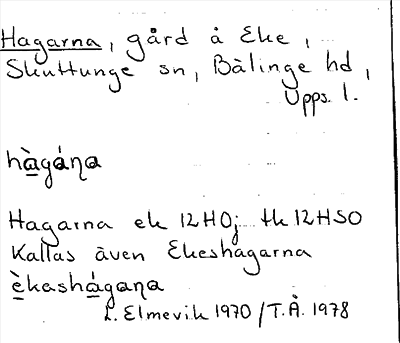 Hagarna, gård å Eke,
Skuttunge sn, Bälinge hd,
Upps. l.
hàgáṇa
Hagarna ek 12H0j tk 12HSO
Kallas även Ekeshagarna
èkashágaṇa
L. Elmevik 1970 / T.Å. 1978